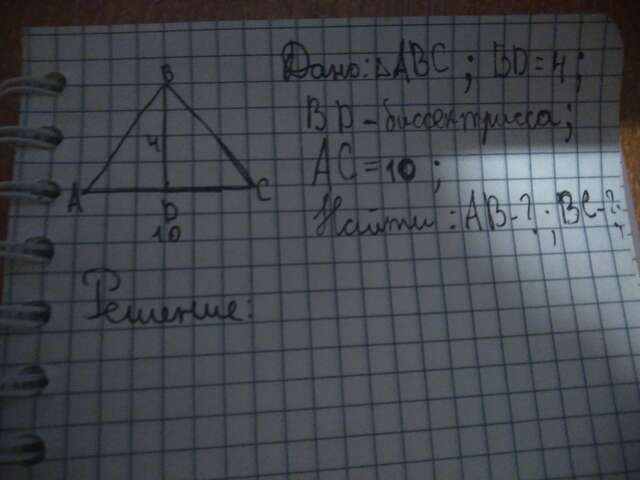 B
Дано: △ABC; BD=4;
4
BD - биссектрисса;
AC=10;
A
C
D
10
Найти: AB-?; BC-?
Решение: